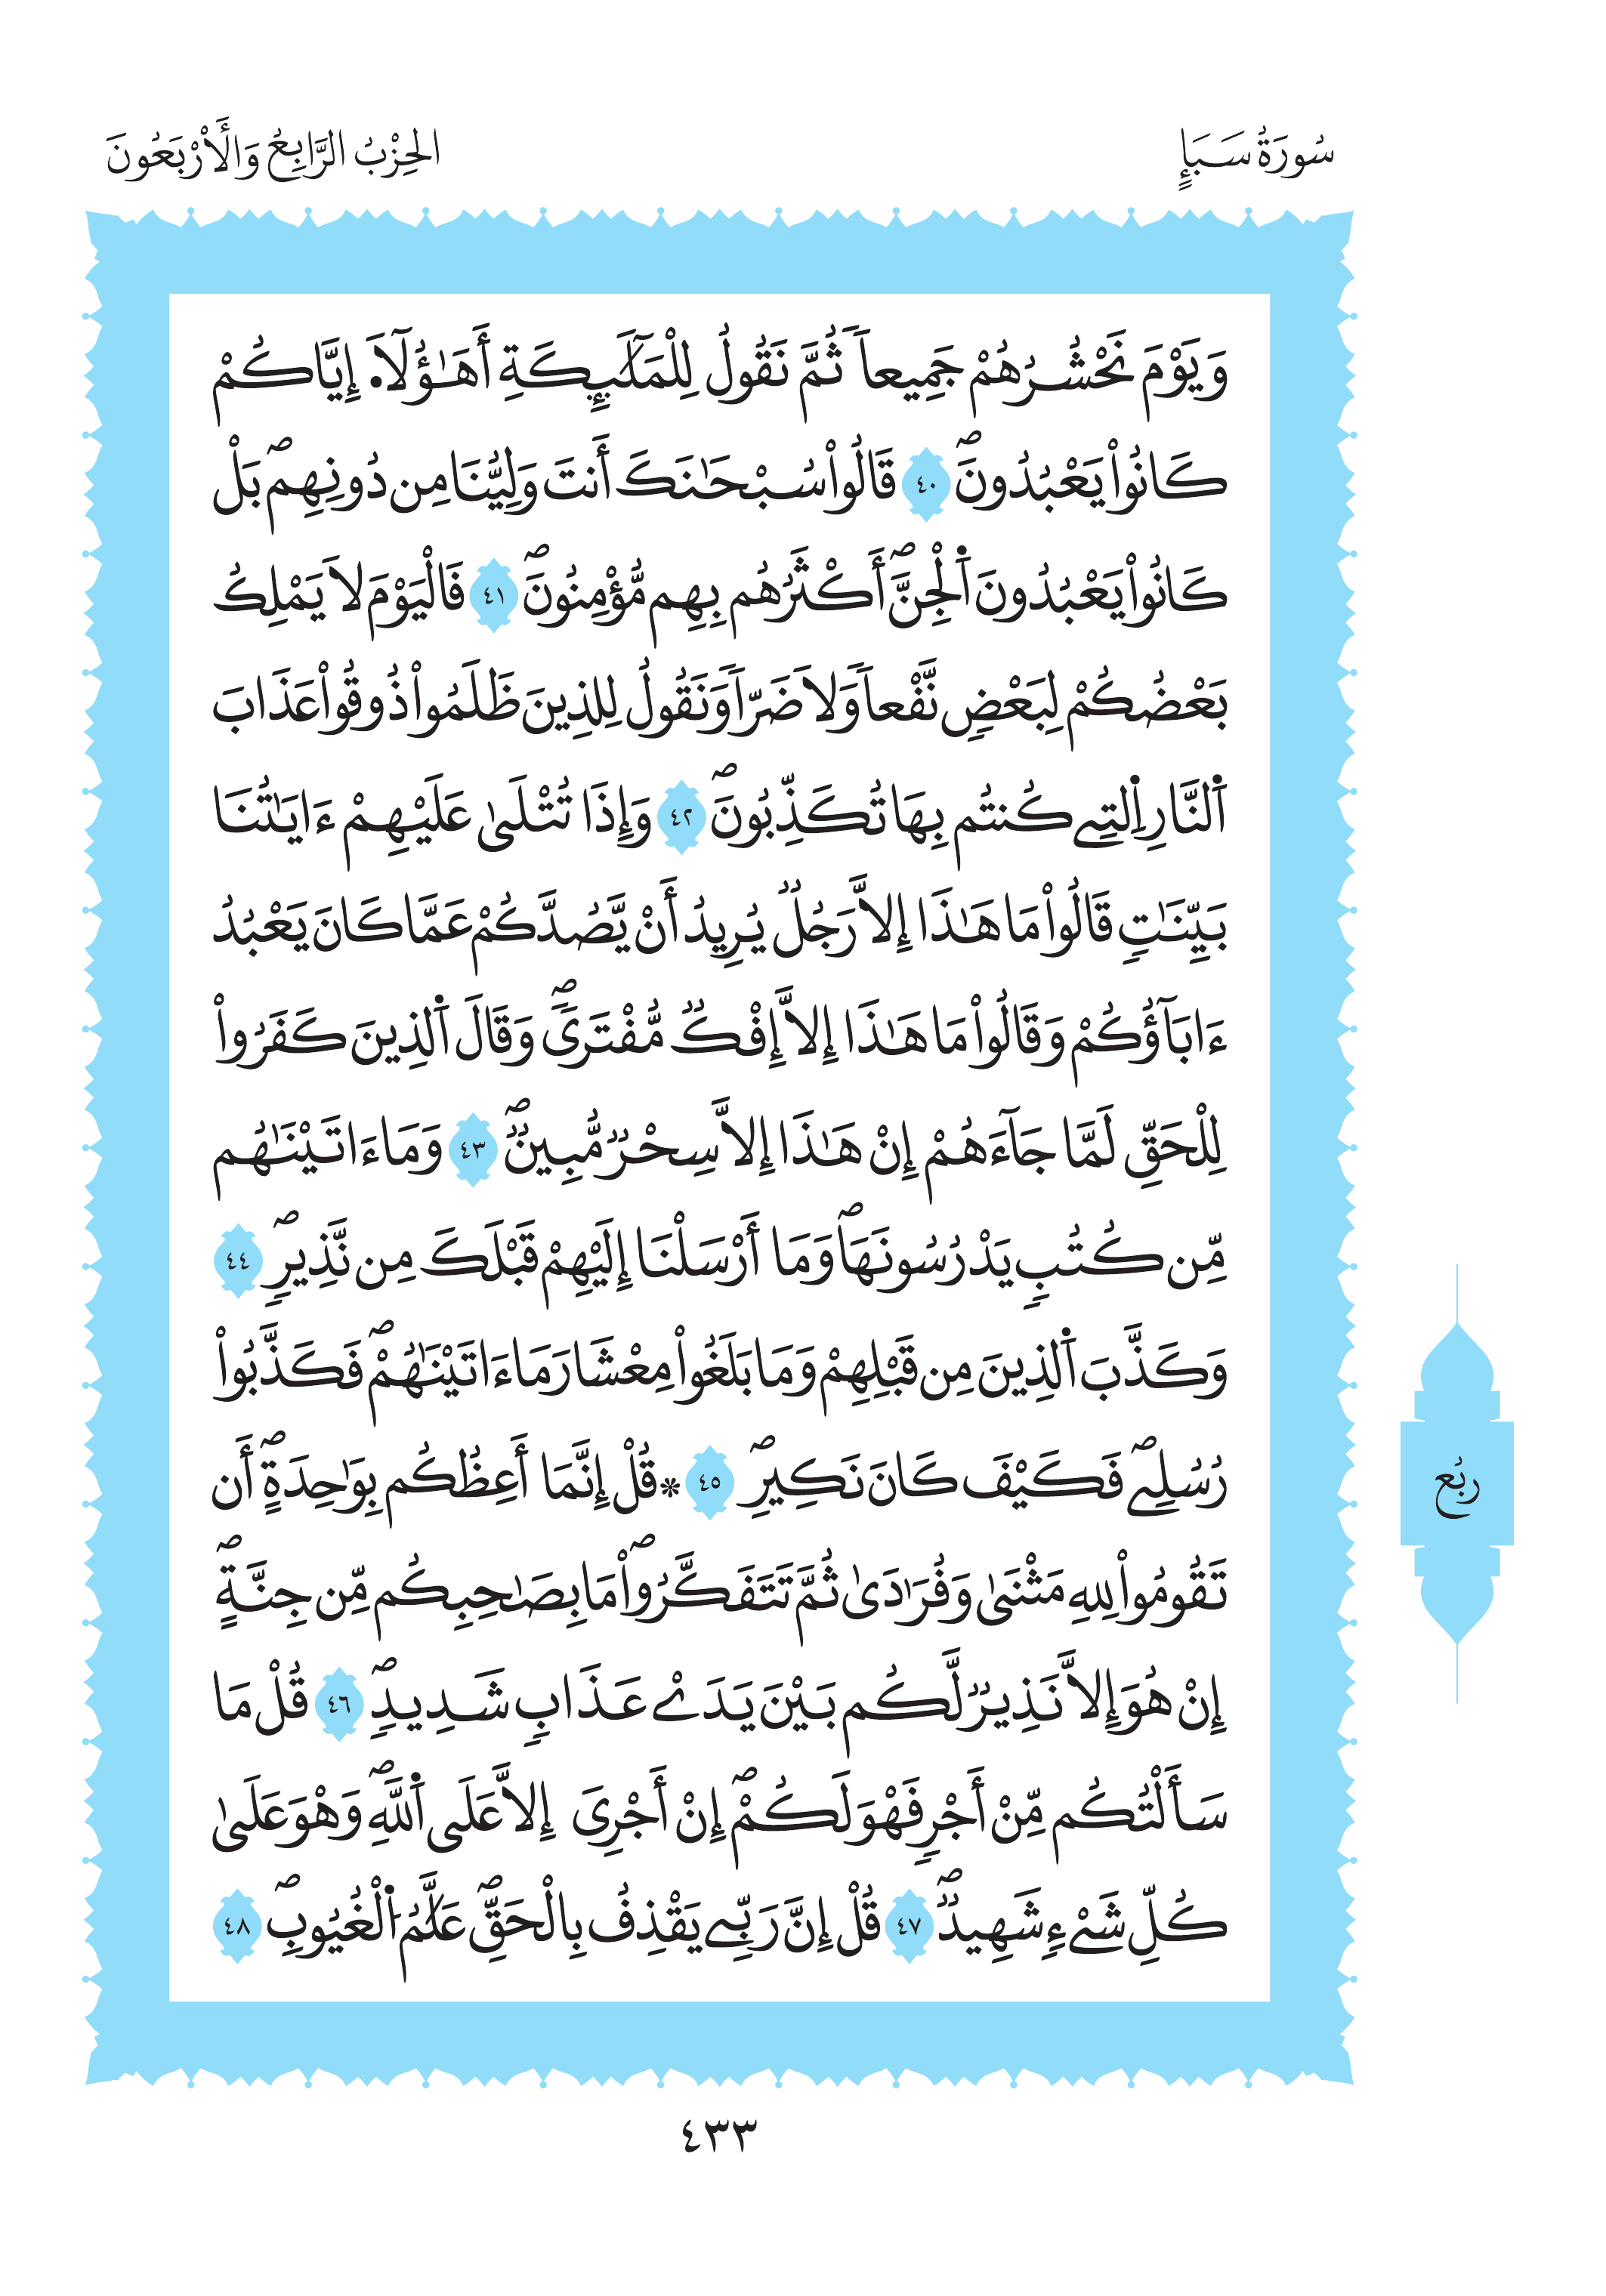 سُورَةُ سَبَإٍ
الحِزْبُ الرَّابِعُ وَالْأَرْبَعُونَ
وَيَوْمَ نَحْشُرُهُمْ جَمِيعاً ثُمَّ نَقُولُ لِلْمَلَٰٓئِكَةِ أَهَٰؤُلَآ. إِيَّاكُمْ
كَانُواْ يَعْبُدُونَۖ ٤٠ قَالُواْ سُبْحَٰنَكَ أَنتَ وَلِيُّنَا مِن دُونِهِمۖ بَلْ
كَانُواْ يَعْبُدُونَ اَ۬لْجِنَّۖ أَكْثَرُهُم بِهِم مُّؤْمِنُونَۖ ٤١ فَالْيَوْمَ لَا يَمْلِكُ
بَعْضُكُمْ لِبَعْضٍ نَّفْعاً وَلَا ضَرّاً وَنَقُولُ لِلذِينَ ظَلَمُواْ ذُوقُواْ عَذَابَ
اَ۬لنَّارِ اِ۬لتِے كُنتُم بِهَا تُكَذِّبُونَۖ ٤٢ وَإِذَا تُتْلَىٰ عَلَيْهِمْ ءَايَٰتُنَا
بَيِّنَٰتٖ قَالُواْ مَا هَٰذَا إِلَّا رَجُلٞ يُرِيدُ أَنْ يَّصُدَّكُمْ عَمَّا كَانَ يَعْبُدُ
ءَابَآؤُكُمْ وَقَالُواْ مَا هَٰذَا إِلَّا إِفْكٞ مُّفْتَرىٗۖ وَقَالَ اَ۬لذِينَ كَفَرُواْ
لِلْحَقِّ لَمَّا جَآءَهُمْ إِنْ هَٰذَا إِلَّا سِحْرٞ مُّبِينٞۖ ٤٣ وَمَا ءَاتَيْنَٰهُم
مِّن كُتُبٖ يَدْرُسُونَهَاۖ وَمَا أَرْسَلْنَا إِلَيْهِمْ قَبْلَكَ مِن نَّذِيرٖۖ ٤٤
وَكَذَّبَ اَ۬لذِينَ مِن قَبْلِهِمْ وَمَا بَلَغُواْ مِعْشَارَ مَا ءَاتَيْنَٰهُمْۖ فَكَذَّبُواْ
رُسُلِےۖ فَكَيْفَ كَانَ نَكِيرِۖ ٤٥ * قُلْ إِنَّمَا أَعِظُكُم بِوَٰحِدَةٍۖ أَن
تَقُومُواْ لِلهِ مَثْنَىٰ وَفُرَٰدَىٰ ثُمَّ تَتَفَكَّرُواْۖ مَا بِصَٰحِبِكُم مِّن جِنَّةٍۖ
إِنْ هُوَ إِلَّا نَذِيرٞ لَّكُم بَيْنَ يَدَےْ عَذَابٖ شَدِيدٖۖ ٤٦ قُلْ مَا
سَأَلْتُكُم مِّنْ أَجْرٖ فَهْوَ لَكُمْۖ إِنْ أَجْرِيَ إِلَّا عَلَى اَ۬للَّهِۖ وَهْوَ عَلَىٰ
كُلِّ شَےْءٖ شَهِيدٞۖ ٤٧ قُلْ إِنَّ رَبِّے يَقْذِفُ بِالْحَقِّۖ عَلَّٰمُ اُ۬لْغُيُوبِۖ ٤٨
ربُع
٤٣٣